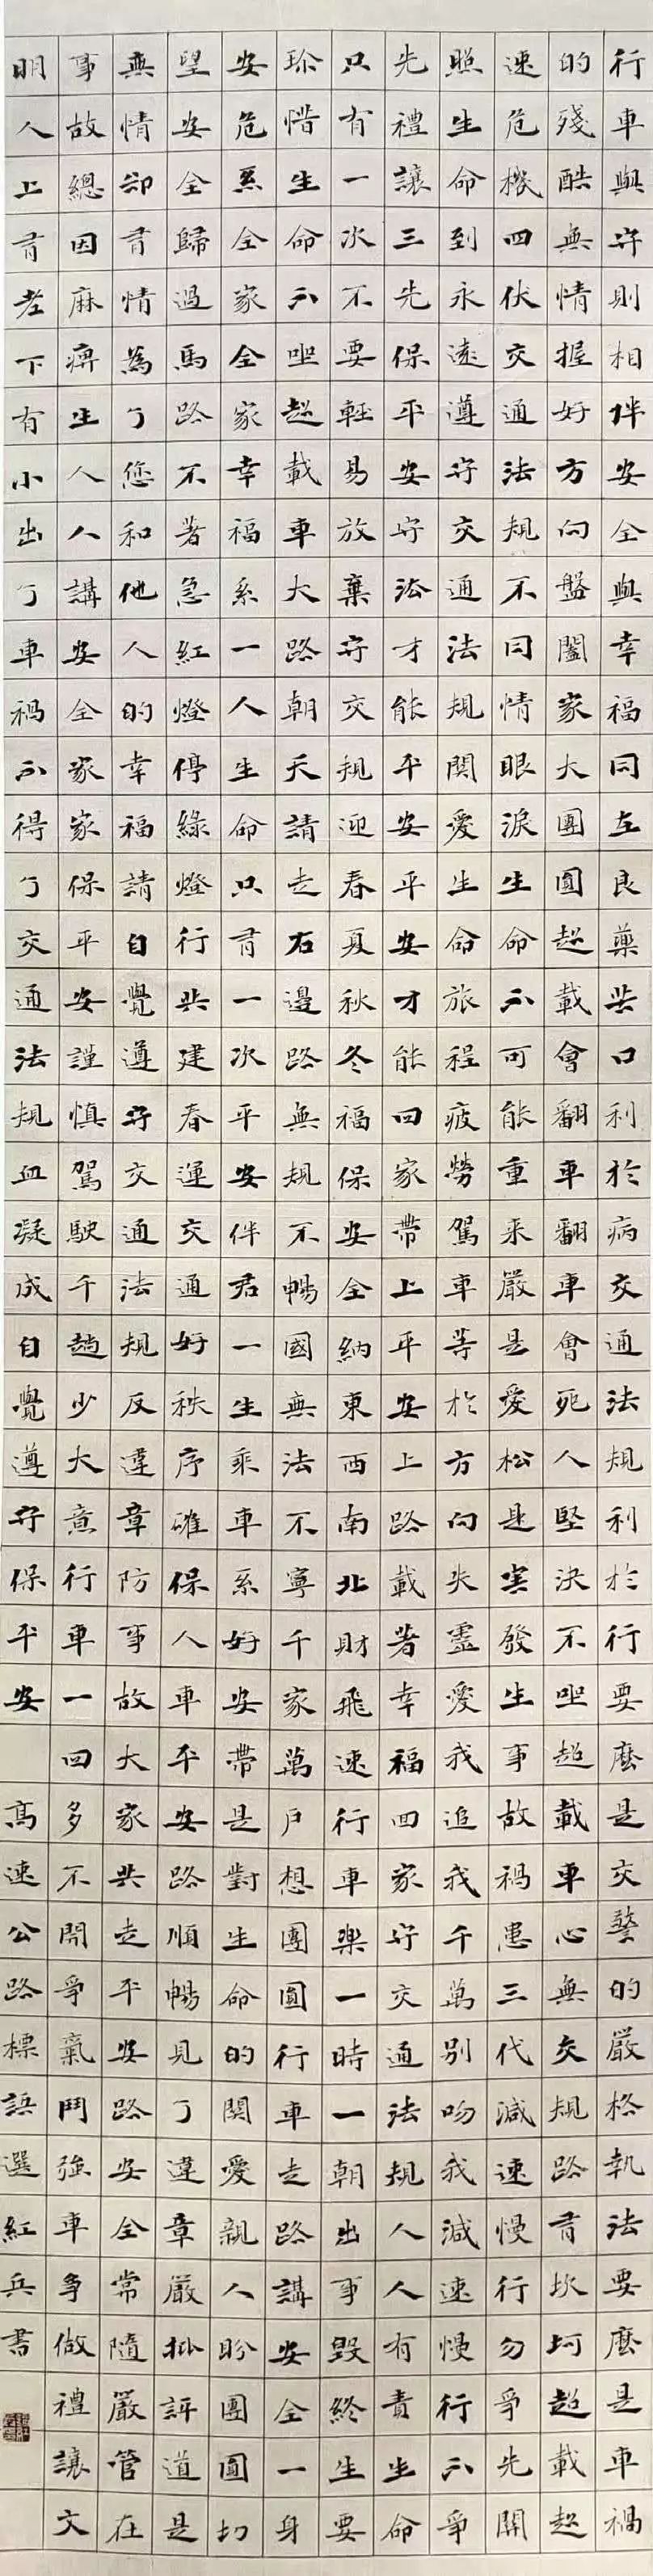 行車與守則相伴安全與幸福同在良藥苦口利於病交通法規利於行要麼是交警的嚴格執法要麼是車禍
的殘酷無情握好方向盤闔家大團圓超載會翻車翻車會死人堅決不坐超載車心無交規路有坎坷超載超
速危機四伏交通法規不同情眼淚生命不可能重來嚴是愛松是害發生事故禍患三代減速慢行勿爭先關
照生命到永遠遵守交通法規關愛生命旅程疲勞駕車等於方向失靈愛我追我千萬別吻我減速慢行不爭
先禮讓三先保平安守法才能平安平安才能回家帶上平安上路載著幸福回家守交通法規人人有責生命
只有一次不要輕易放棄守交規迎春夏秋冬福保安全納東西南北財飛速行車樂一時一朝出事毀終生要
珍惜生命不坐超載車大路朝天請走右邊路無規不暢國無法不寧千家萬戶想團圓行車走路講安全一身
安危系全家全家幸福系一人生命只有一次平安伴君一生乘車系好安帶是對生命的關愛親人盼團圓切
望安全歸過馬路不著急紅燈停綠燈行共建春運交通好秩序確保人車平安路順暢見了違章嚴批評道是
無情卻有情為了您和他人的幸福請自覺遵守交通法規反違章防事故大家共走平安路安全常隨嚴管在
事故總因麻痹生人人講安全家家保平安謹慎駕駛千趟少大意行車一回多不開爭氣鬥強車爭做禮讓文
明人上有老下有小出了車禍不得了交通法規血凝成自覺遵守保平安 高速公路標語選紅兵書